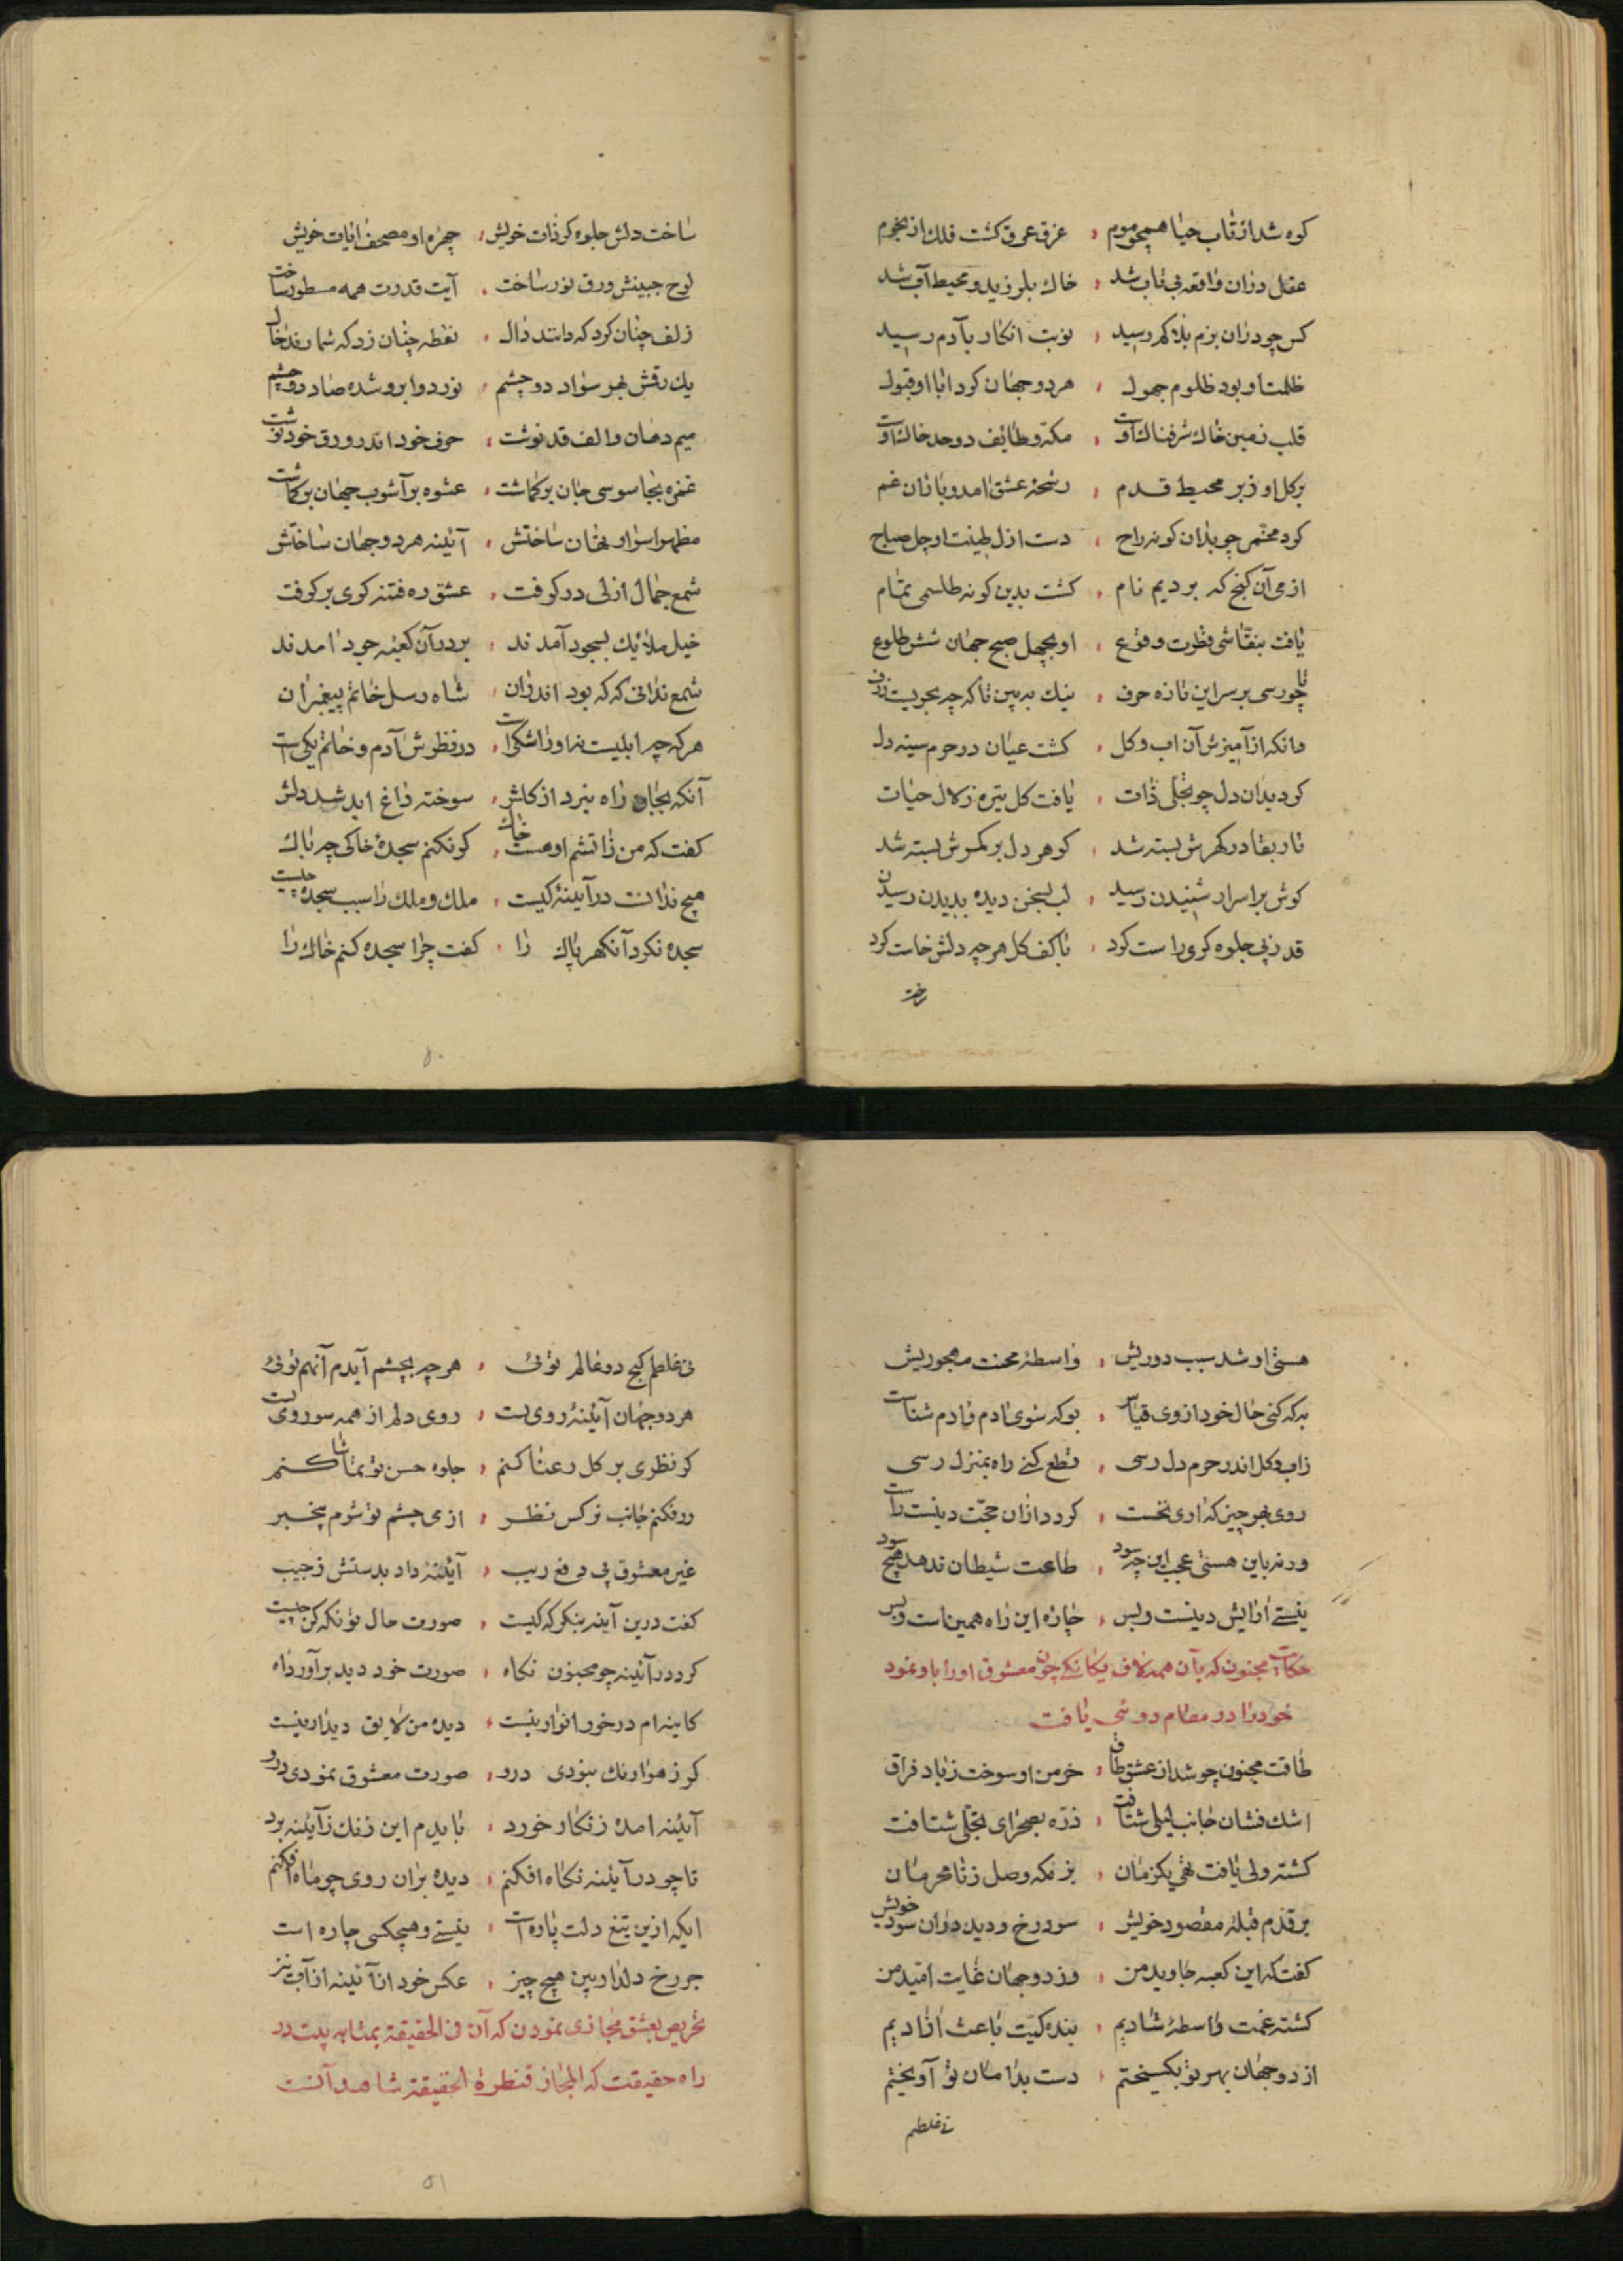 کوه شد از تاب حیا همچو موم ، غرق عرق کشت فلک از نجوم
عقل دران واقعه بی تاب شد ، خاک بلرزید و محیط آب شد
کس چو دران بزم بلا کم رسید ، نوبت انکار بآدم رسید
ظلمت او بود ظلوم جهول ، هر دو جهان کرد ابا او قبول
قلب زمین خاک شرفناک اوست ، مکه و طائف دو حد خاک اوست
بر کل او ز بر محیط قدم ، رشحه عشق امد و باران غم
کرد مخمر چو بدان کونه راح ، دست ازل طینت او چل صباح
از می آن کنج که بردیم نام ، کشت بدین کونه طلسمی تمام
یافت بنقاشی فطرت وقوع ، او بچهل صبح جهان شش طلوع
تا چو رسی بر سر این تازه حرف ، نیک ببین تا که چه بحریست ژرف
دانکه از آمیزش آن اب و کل ، کشت عیان در حرم سینه دل
کرد بدان دل چو تجلی ذات ، یافت کل تیره زلال حیات
تار بقا در کهرش بسته شد ، کوهر دل بر کمرش بسته شد
کوش بر اسرار شنیدن رسید ، لب بسخن دیده بدیدن رسید
قد ز پی جلوه کری راست کرد ، با کف کل هرچه دلش خاست کرد
ساخت دلش جلوه کر ذات خویش ، چهره او مصحف ایات خویش
لوح جبینش ورق نور ساخت ، آیت قدرت همه مسطور ساخت
زلف چنان کرد که دانند دال ، نقطه چنان زد که شمارند خال
یک رقش بهر سواد دو چشم ، نور دو ابرو شده صاد دو چشم
میم دهان و الف قد نوشت ، حرف خود اندر ورق خود نوشت
غمزه بجاسوسی جان برکماشت ، عشوه بر آشوب جهان برکماشت
مظهر اسرار نهان ساختش ، آئینه هر دو جهان ساختش
شمع جمال ازلی در کرفت ، عشق ره فتنه کری بر کرفت
خیل ملائیک بسجود آمدند ، بر در آن کعبه جود امدند
شمع ندانی که که بود اندران ، شاه رسل خاتم پیغمبران
هر که چه ابلیست نه او را شکی است ، در نظرش آدم و خاتم یکی است
آنکه بجان راه نبرد از کلش ، سوخته داغ ابد شد دلش
کفت که من زاتشم او هست خاک ، کو نکنم سجدهٔ خاکی چه باک
هیچ ندانست در آیینهٔ کیست ، ملک و ملک را سبب سجده چیست
سجده نکرد آن کهر پاک را ، کفت چرا سجده کنم خاک را
رخت
۵۰
هستی او شد سبب دوریش ، واسطهٔ محنت مهجوریش
به که کنی حال خود از وی قیاس ، بو که شوی ادم و ادم شناس
زاب و کل اندر حرم دل رسی ، قطع کنی راه بمنزل رسی
روی بهر چیز که اری نخست ، کردد ازان حجّت دینت درست
ورنه باین هستی عجب این چه سود ، طاعت شیطان ندهد هیچ سود
نیستی ارایش دینست و بس ، چاره این راه همین است و بس
حکایت مجنون که بآن همه لاف یکانکی چون معشوق او را باو نمود
خود را در مقام دوئی یافت
طاقت مجنون چو شد از عشق طاق ، خرمن او سوخت ز باد فراق
اشک فشان جانب لیلی شتافت ، ذرّه بصحرای تجلّی شتافت
کشته ولی یافت نهی یکزمان ، بزمکه وصل ز نامحرمان
بر قدم قبلهٔ مقصود خویش ، سود رخ و دید دران سود خویش
کفت که این کعبه جاوید من ، وز دو جهان غایت امّید من
کشته غمت واسطهٔ شادیم ، بنده کیّت باعث ازادیم
از دو جهان بهر تو بکسیختم ، دست بدامان تو آویختم
نی غلطم
نی غلطم کنج دو عالم توئی ، هر چه بچشم آیدم آنهم توئی
هر دو جهان آئینهٔ روی تست ، روی دلم از همه سو روی تست
کر نظری بر کل رعنا کنم ، جلوه حسن تو تماشا کنم
ور فکنم جانب نرکس نظر ، از می چشم تو شوم بیخبر
غیر معشوق پی دفع ریب ، آئینهٔ داد بدستش ز جیب
کفت درین آینه بنکر که کیست ، صورت حال تو نکه کن چیست
کرد در آئینه چو مجنون نکاه ، صورت خود دید برآورد اه
کاینه ام در خور انوار نیست ، دیده من لایق دیدار نیست
کر ز هوا رنک نبودی درو ، صورت معشوق نمودی درو
آئینه امده ز نکار خورد ، بایدم این زنک ز آیئنه برد
تا چو در آیئنه نکاه افکنم ، دیده بران روی چو ماه افکنم
ایکه ازین تیغ دلت پاره است ، نیستی و هیچکسی چاره است
جز رخ دلدار مبین هیچ چیز ، عکس خود از آئینه از آب نیز
تحریص بعشق مجازی نمودن که آن فی الحقیقة بمثابه پلیست در
راه حقیقت که المجاز قنطرة الحقیقة شاهد آنست
۵۱